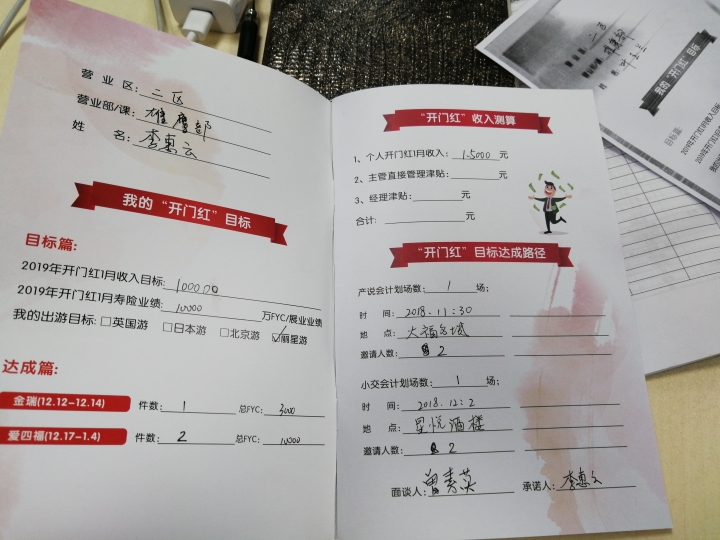 营 业 区: 二区
营业部/课: 雄鹰部
姓 名: 李惠云
我的“开门红”目标
目标篇:
2019年开门红1月收入目标: 100000
2019年开门红1月寿险业绩: 10000 万FYC/展业业绩
我的出游目标: □英国游 □日本游 □北京游 ☑丽星游
达成篇:
金瑞(12.12-12.14) 件数: 1 总FYC: 3000
爱四福(12.17-1.4) 件数: 2 总FYC: 10000
“开门红”收入测算
1、个人开门红1月收入: 1.5000 元
2、主管直接管理津贴: 元
3、经理津贴: 元
合计: 元
“开门红”目标达成路径
产说会计划场数: 1 场;
时 间: 2018.11.30
地 点: 大福名城
邀请人数: 2
小交会计划场数: 1 场;
时 间: 2018.12.2
地 点: 星悦酒楼
邀请人数: 2
面谈人: 曾秀英 承诺人: 李惠云
我的“开门红”目标
目标篇:
2019年开门红1月收入目标
2019年开门红1月